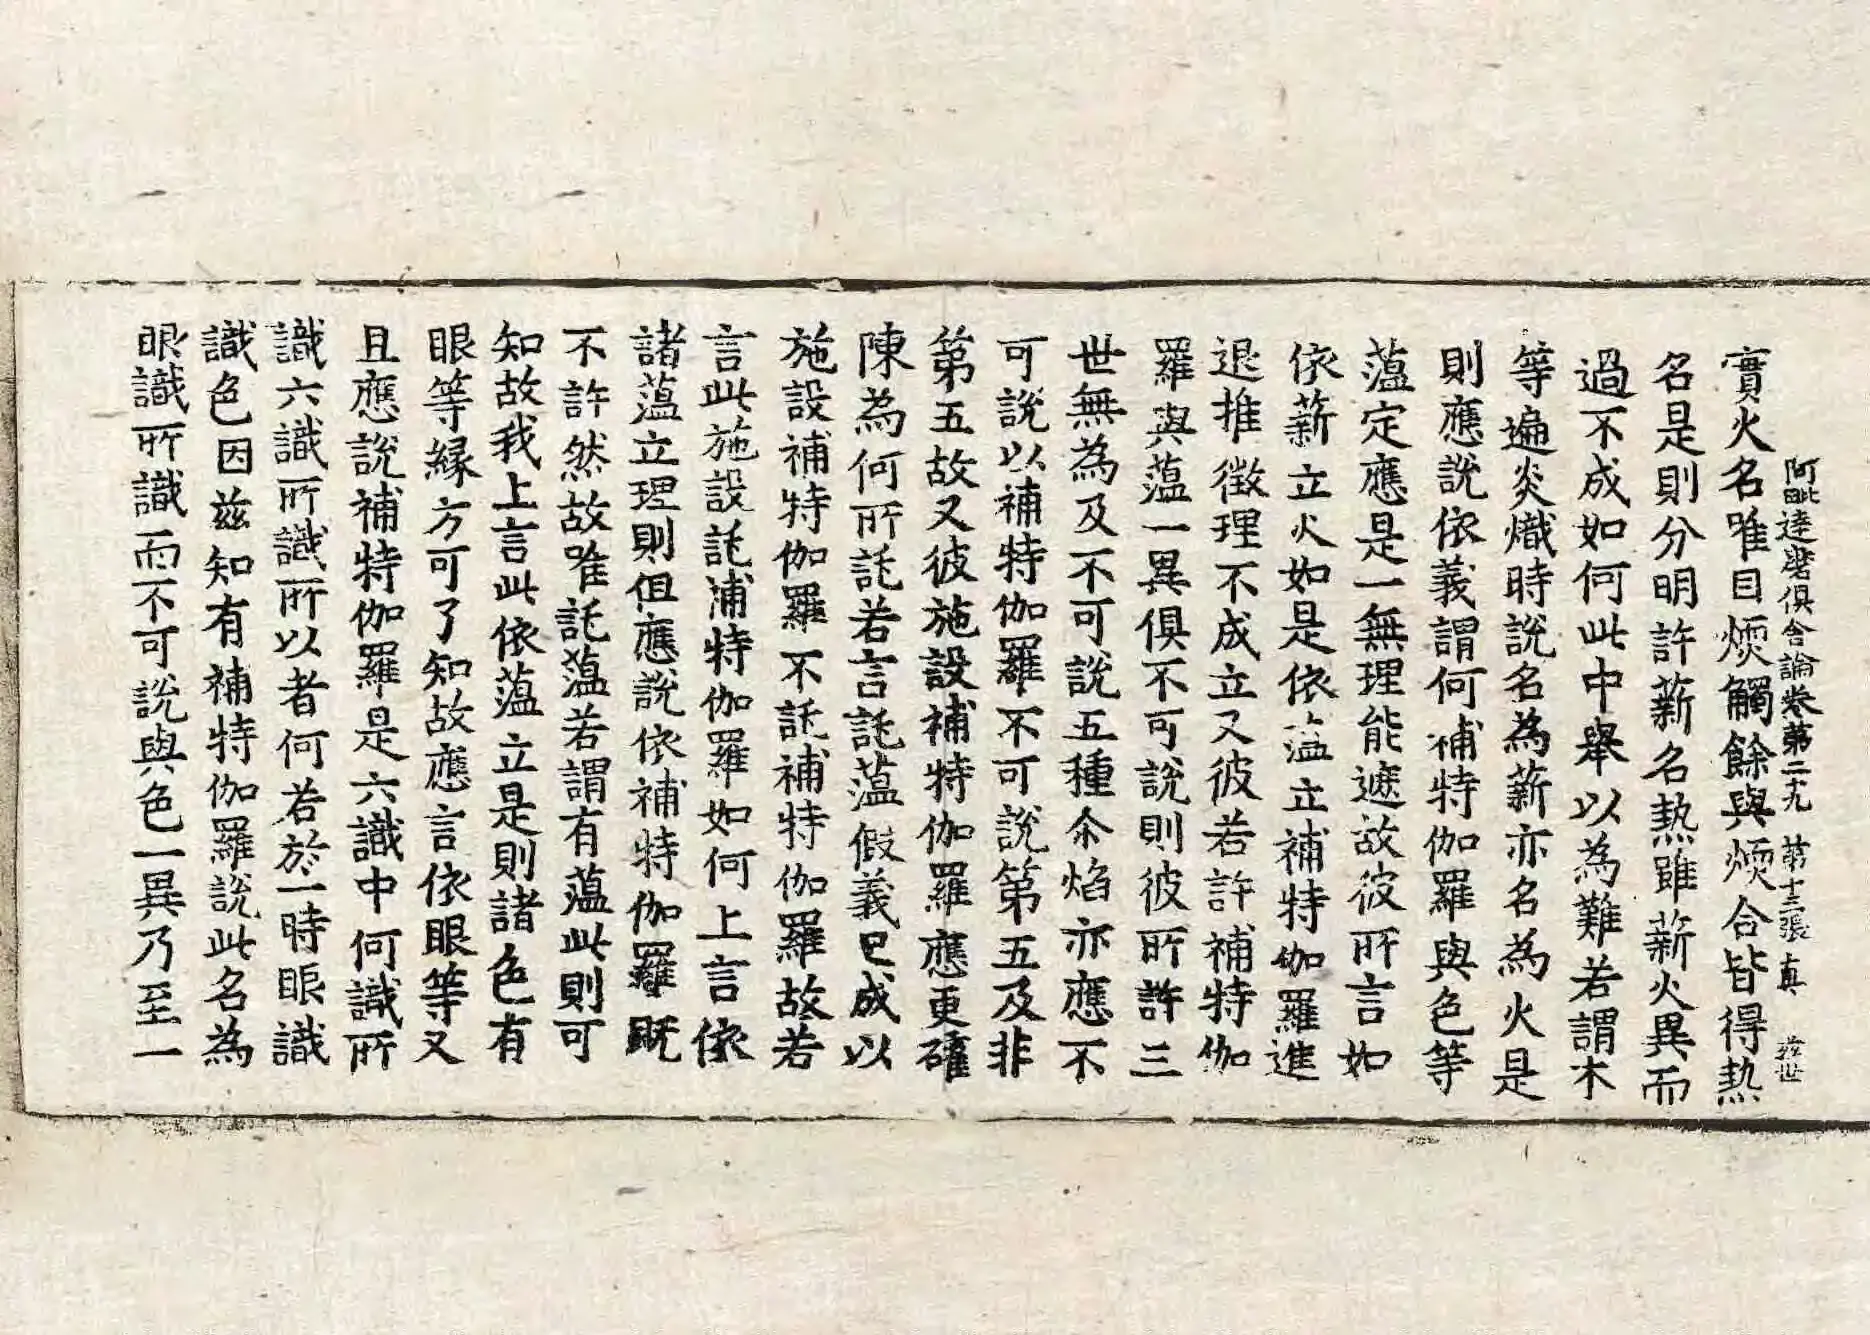 阿毗達磨俱舍論卷第二十九 第十三張 真
實火名唯目煗觸餘與煗合皆得熱
名是則分明許薪名熱雖薪火異而
過不成如何此中舉以為難若謂木
等遍炎熾時說名為薪亦名為火是
則應說依義謂何補特伽羅與色等
蘊定應是一無理能遮故彼所言如
依薪立火如是依蘊立補特伽羅進
退推徵理不成立又彼若許補特伽
羅與蘊一異俱不可說則彼所許三
世無為及不可說五種尒焰亦應不
可說以補特伽羅不可說第五及非
第五故又彼施設補特伽羅應更確
陳為何所託若言託蘊假義已成以
施設補特伽羅不託補特伽羅故若
言此施設託浦特伽羅如何上言依
諸蘊立理則但應說依補特伽羅既
不許然故唯託蘊若謂有蘊此則可
知故我上言此依蘊立是則諸色有
眼等緣方可了知故應言依眼等又
且應說補特伽羅是六識中何識所
識六識所識所以者何若於一時眼識
識色因茲知有補特伽羅說此名為
眼識所識而不可說與色一異乃至一